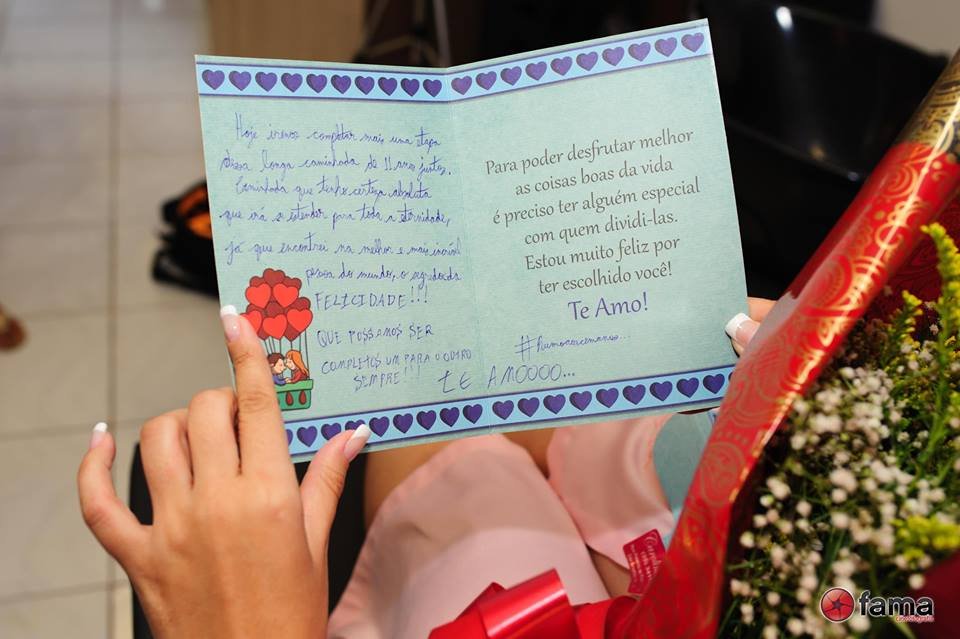 Hoje iremos completar mais uma etapa
dessa longa caminhada de 11 anos juntos.
Caminhada que tenho certeza absoluta
que irá se estender para toda a eternidade,
já que encontrei na melhor e mais incrível
pessoa do mundo, o segredo da
FELICIDADE!!!
QUE POSSAMOS SER
COMPLETOS UM PARA O OUTRO
SEMPRE!!!
TE AMOOOO...
Para poder desfrutar melhor
as coisas boas da vida
é preciso ter alguém especial
com quem dividi-las.
Estou muito feliz por
ter escolhido você!
Te Amo!
fama